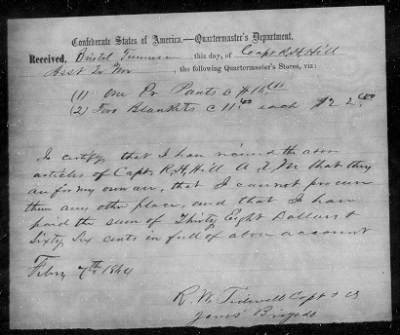 Confederate States of America.—Quartermaster's Department.
Received, Bristol Tennessee this day, of Capt R. H. Hill
Asst Qr Mr, the following Quartermaster's Stores, viz:
(1) One Pr Pants @ $16
(2) Two Blankets @ 11 each $22
I certify that I have received the above
articles of Capt. R. H. Hill A Q M that they
are for my own use, that I cannot procure
them any other place, and that I have
paid the sum of Thirty Eight Dollars &
Sixty Six cents in full of above account
Febry 7th 1864
R. W. Tidwell Capt
Jones' Brigade